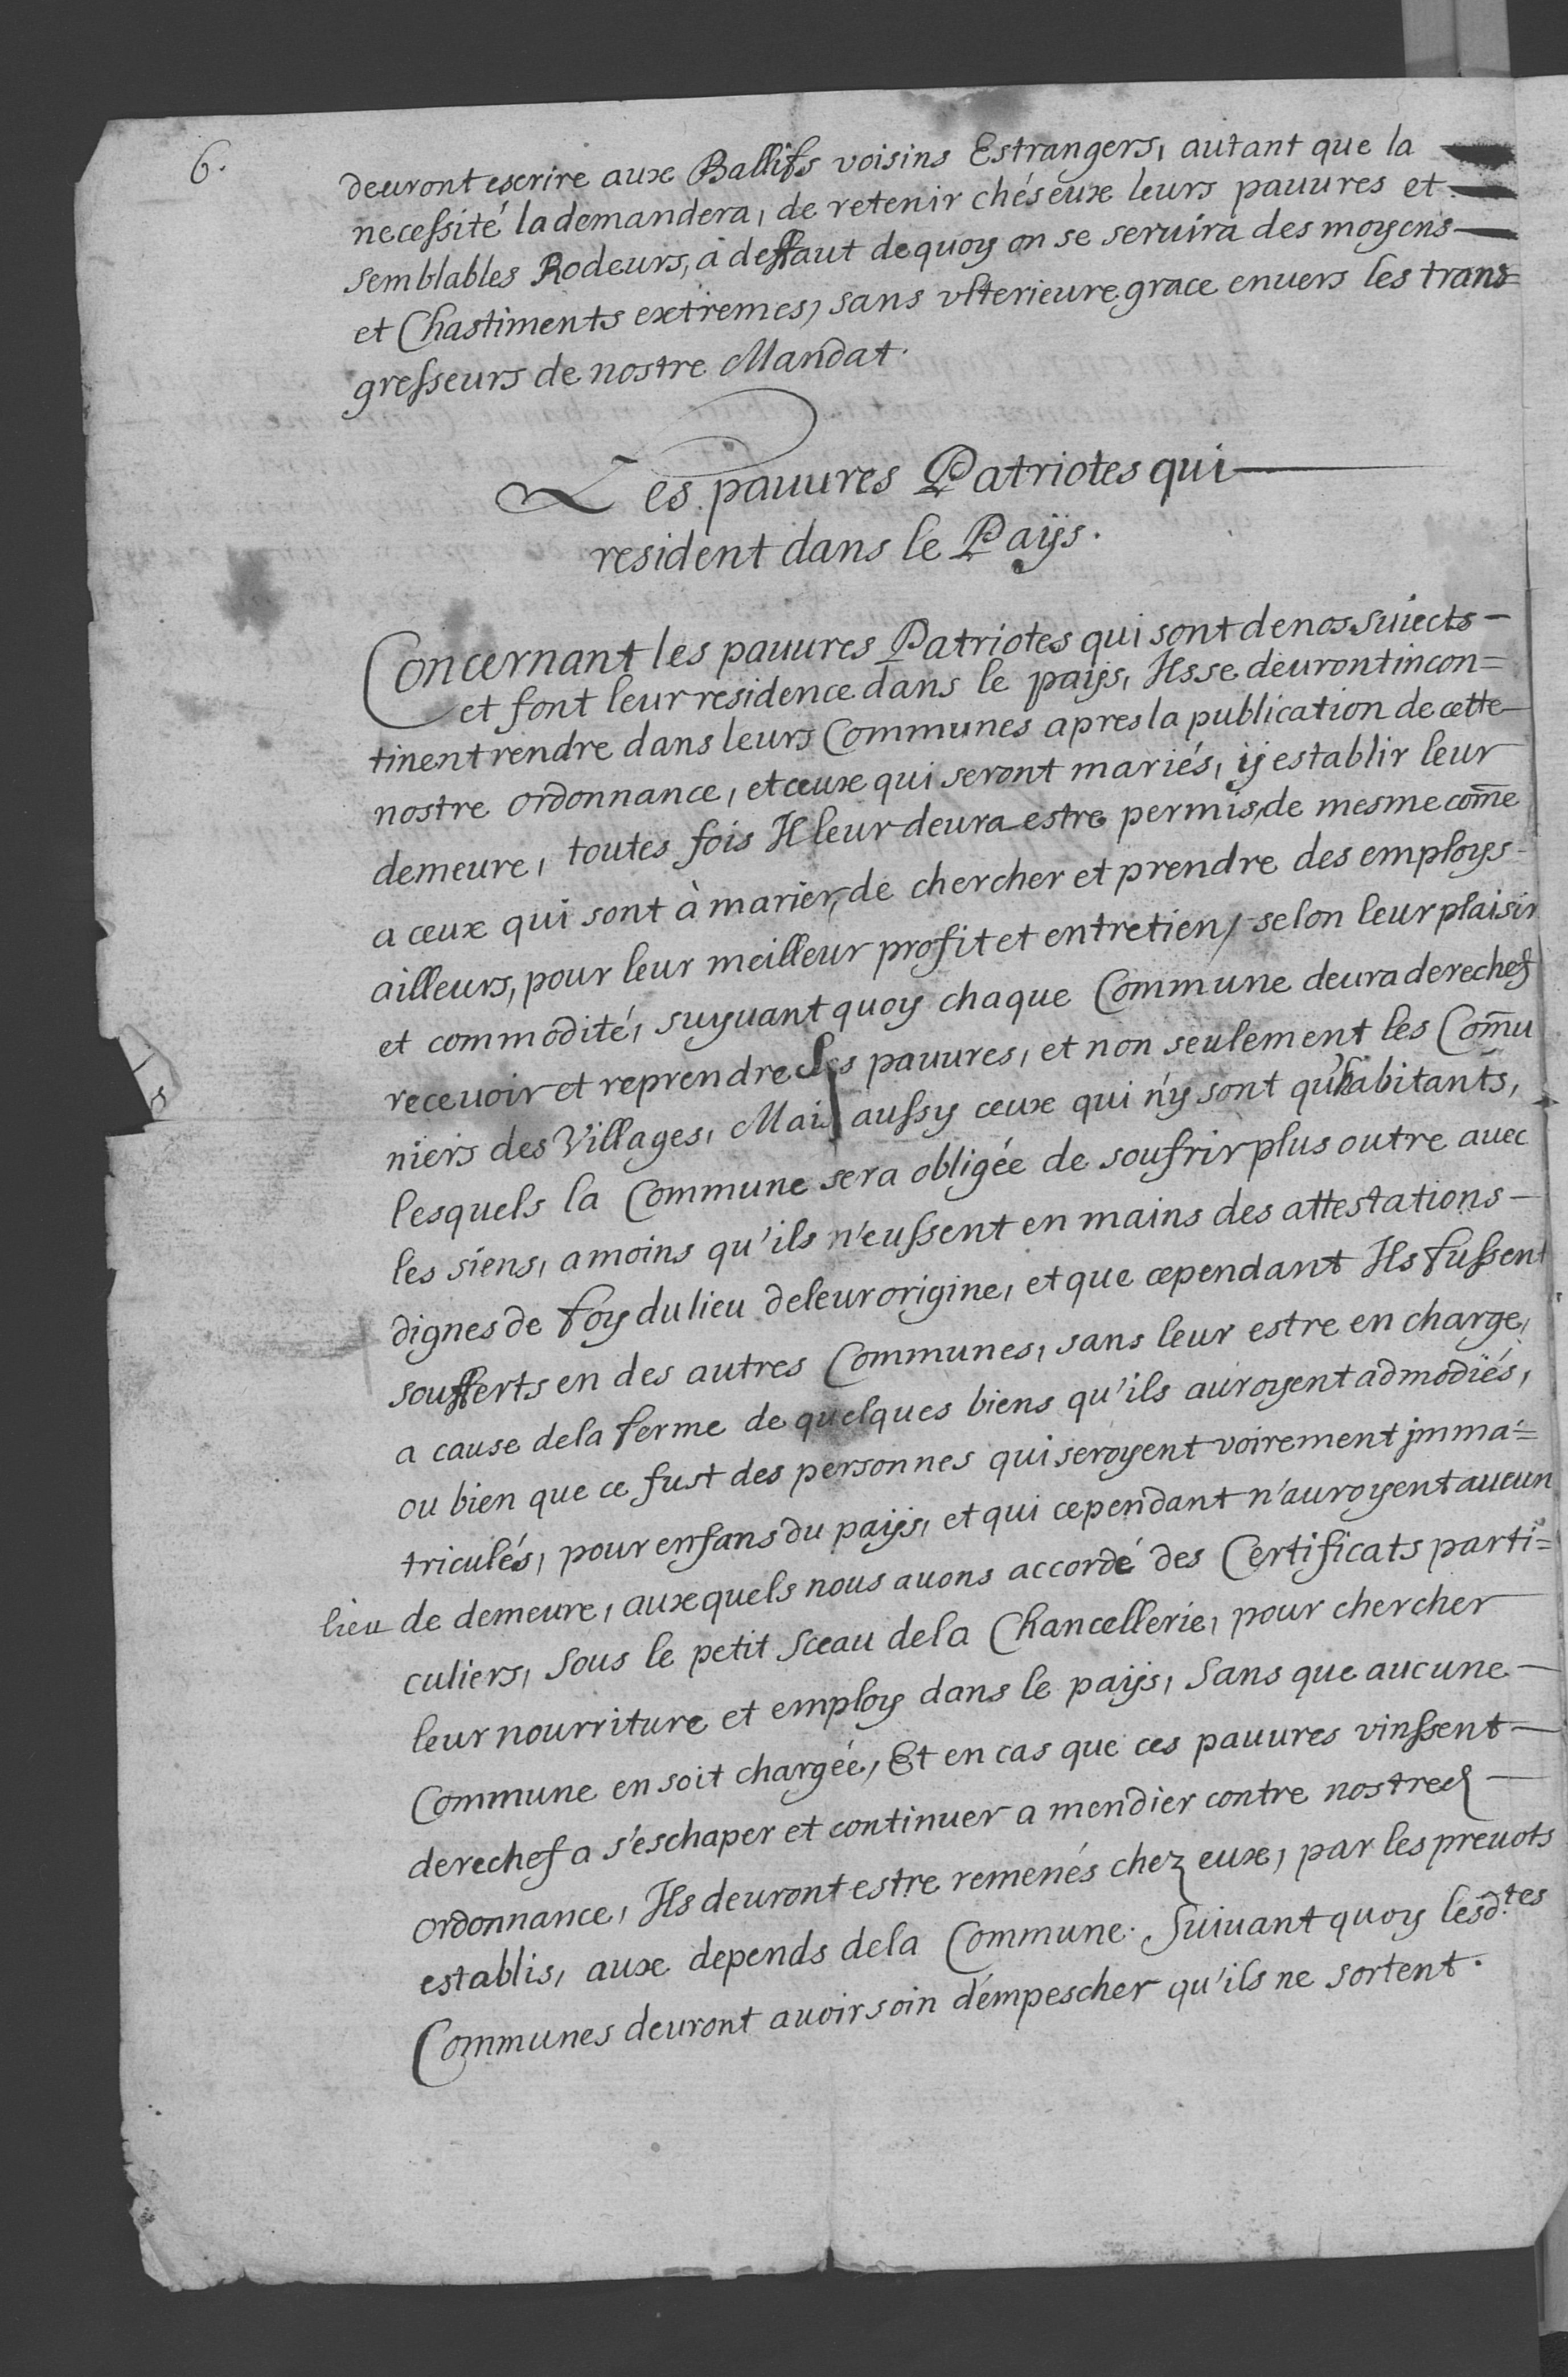 6.
deuront escrire aux Ballifs voisins Estrangers, autant que la
necessité la demandera, de retenir chés eux leurs pauures et
semblables Rodeurs, à deffaut de quoy on se seruira des moyens
et Chastiments extremes, sans vlterieure grace enuers les trans=
gresseurs de nostre Mandat.
Les pauures Patriotes qui
resident dans le Paÿs.
Concernant les pauures Patriotes qui sont de nos suiects
et font leur residence dans le paÿs, Ils se deuront incon=
tinent rendre dans leurs Communes apres la publication de cette
nostre ordonnance, et ceux qui seront mariés, ÿ establir leur
demeure, toutes fois Il leur deura estre permis, de mesme com̄e
a ceux qui sont à marier, de chercher et prendre des employs
ailleurs, pour leur meilleur profit et entretien, selon leur plaisir
et commodité, suyuant quoy chaque Commune deura derechef
receuoir et reprendre Les pauures, et non seulement les Com̄u
niers des Villages, Mais aussy ceux qui n'y sont qu'habitants,
lesquels la Commune sera obligée de soufrir plus outre auec
les siens, a moins qu'ils n'eussent en mains des attestations
dignes de foy du lieu de leur origine, et que cependant Ils fussent
soufferts en des autres Communes, sans leur estre en charge,
a cause de la ferme de quelques biens qu'ils auroyent admodiés,
ou bien que ce fust des personnes qui seroyent voirement jmma=
triculés, pour enfans du paÿs, et qui cependant n'auroyent aucun
lieu de demeure, auxquels nous auons accordé des Certificats parti=
culiers, sous le petit Sceau de la Chancellerie, pour chercher
leur nourriture et employ dans le paÿs, sans que aucune
Commune en soit chargée, Et en cas que ces pauures vinssent
derechef a s'eschaper et continuer a mendier contre nostred
ordonnance, Ils deuront estre remenés chez eux, par les preuots
establis, aux depends de la Commune. Suiuant quoy lesd.tes
Communes deuront auoir soin d'empescher qu'ils ne sortent.